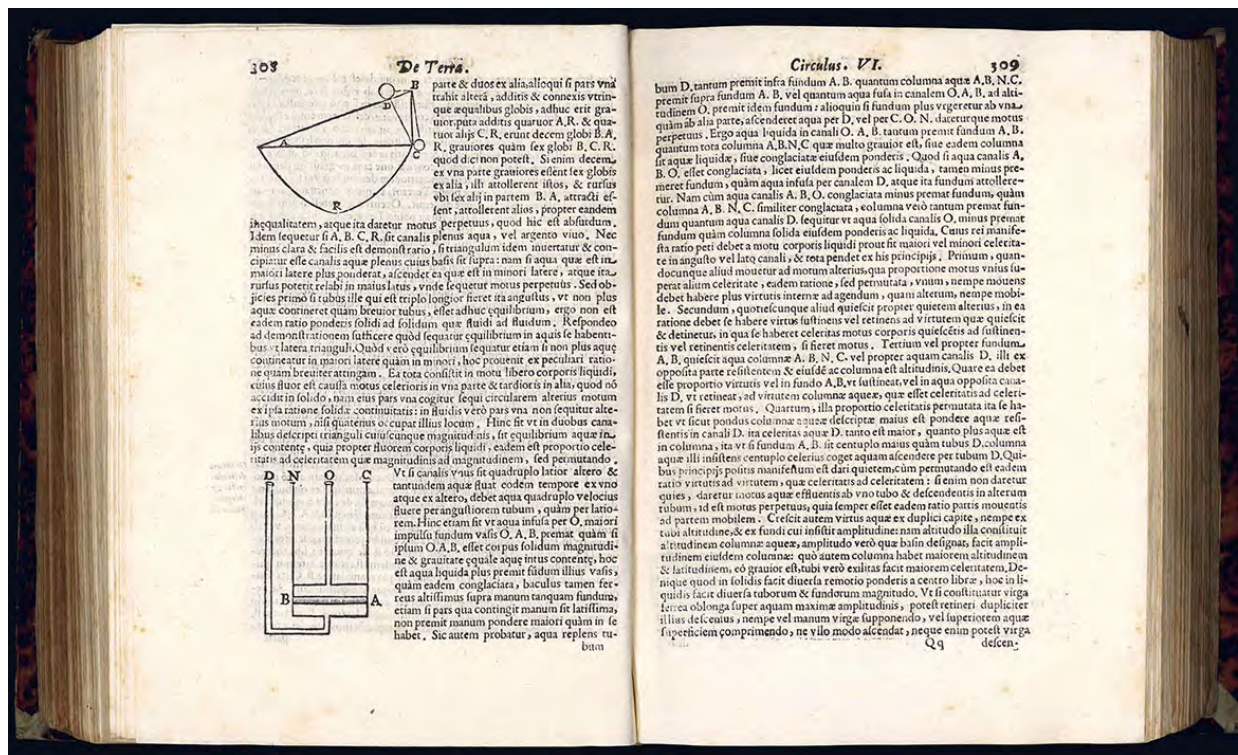 308
De Terra.
parte & duos ex alia, alioqui si pars vna
trahit alterã, additis & connexis vtrin-
que æqualibus globis, adhuc erit gra-
uior, puta additis quatuor A.R. & qua-
tuor alijs C.R. erunt decem globi B.A.
R. grauiores quàm sex globi B.C.R.
quod dici non potest. Si enim decem
ex vna parte grauiores essent sex globis
ex alia, illi attollerent istos, & rursus
vbi sex alij in partem B. A, attracti es-
sent, attollerent alios, propter eandem
inęqualitatem, atque ita daretur motus perpetuus, quod hic est absurdum.
Idem sequetur si A. B. C. R. sit canalis plenus aqua, vel argento viuo. Nec
minus clara & facilis est demonstratio, si triangulum idem inuertatur & con-
cipiatur esse canalis aquæ plenus cuius basis sit supra: nam si aqua quæ est in
maiori latere plus ponderat, ascendet ea quæ est in minori latere, atque ita
rursus poterit relabi in maius latus, vnde sequetur motus perpetuus. Sed ob-
jicies primò si tubus ille qui est triplo longior fieret ita angustus, vt non plus
aquæ contineret quàm breuior tubus, esset adhuc equilibrium, ergo non est
eadem ratio ponderis solidi ad solidum quæ fluidi ad fluidum. Respondeo
ad demonstrationem sufficere quòd sequatur equilibrium in aquis se habenti-
bus vt latera trianguli. Quòd verò ęquilibrium sequatur etiam si non plus aquę
contineatur in maiori latere quàm in minori, hoc prouenit ex peculiari ratio-
ne quam breuiter attingam. Ea tota consistit in motu libero corporis liquidi,
cuius fluor est caussa motus celerioris in vna parte & tardioris in alia, quod nõ
accidit in solido, nam eius pars vna cogitur sequi circularem alterius motum
ex ipsa ratione solidæ continuitatis: in fluidis verò pars vna non sequitur alte-
rius motum, nisi quatenus occupat illius locum. Hinc fit vt in duobus cana-
libus descripti trianguli cuiuscunque magnitudinis, sit equilibrium aquæ in
ijs contentę, quia propter fluorem corporis liquidi, eadem est proportio cele-
ritatis ad celeritatem quæ magnitudinis ad magnitudinem, sed permutando.
Vt si canalis vnus sit quadruplo latior altero &
tantundem aquæ fluat eodem tempore ex vno
atque ex altero, debet aqua quadruplo velocius
fluere per angustiorem tubum, quàm per latio-
rem. Hinc etiam fit vt aqua infusa per O. maiori
impulsu fundum vasis O. A. B. premat quàm si
ipsum O.A.B. esset corpus solidum magnitudi-
ne & grauitate equale aquę intus contentę, hoc
est aqua liquida plus premit fũdum illius vasis,
quàm eadem conglaciata, baculus tamen fer-
reus altissimus supra manum tanquam fundum,
etiam si pars qua contingit manum sit latissima,
non premit manum pondere maiori quàm in se
habet. Sic autem probatur, aqua replens tu-
bum
B
D
A
C
R
D N O C
B A
Circulus. VI.
309
bum D. tantum premit infra fundum A. B. quantum columna aquæ A.B. N.C.
premit supra fundum A. B. vel quantum aqua fusa in canalem O. A, B. ad alti-
tudinem O. premit idem fundum: alioquin si fundum plus vrgeretur ab vna
quàm ab alia parte, ascenderet aqua per D, vel per C. O. N. dareturque motus
perpetuus. Ergo aqua liquida in canali O. A. B. tantum premit fundum A. B.
quantum tota columna A.B.N.C quæ multo grauior est, siue eadem columna
sit aquæ liquidæ, siue conglaciatæ eiusdem ponderis. Quod si aqua canalis A.
B. O. esset conglaciata, licet eiusdem ponderis ac liquida, tamen minus pre-
meret fundum, quàm aqua infusa per canalem D. atque ita fundum attollere-
tur. Nam cùm aqua canalis A. B. O. conglaciata minus premat fundum, quàm
columna A. B. N. C. similiter conglaciata, columna verò tantum premat fun-
dum quantum aqua canalis D. sequitur vt aqua solida canalis O. minus premat
fundum quàm columna solida eiusdem ponderis ac liquida. Cuius rei manife-
sta ratio peti debet a motu corporis liquidi prout fit maiori vel minori celerita-
te in angusto vel lato canali, & tota pendet ex his principijs. Primum, quan-
docunque aliud mouetur ad motum alterius, qua proportione motus vnius su-
perat alium celeritate, eadem ratione, sed permutata, vnum, nempe mouens
debet habere plus virtutis internæ ad agendum, quam alterum, nempe mobi-
le. Secundum, quotiescunque aliud quiescit propter quietem alterius, in ea
ratione debet se habere virtus sustinens vel retinens ad virtutem quæ quiescit
& detinetur, in qua se haberet celeritas motus corporis quiescẽtis ad sustinen-
tis vel retinentis celeritatem, si fieret motus. Tertium vel propter fundum
A, B, quiescit aqua columnæ A. B. N. C. vel propter aquam canalis D. illi ex
opposita parte resistentem & eiusdẽ ac columna est altitudinis. Quare ea debet
esse proportio virtutis vel in fundo A,B, vt sustineat, vel in aqua opposita cana-
lis D. vt retineat, ad virtutem columnæ aqueæ, quæ esset celeritatis ad celeri-
tatem si fieret motus. Quartum, illa proportio celeritatis permutata ita se ha-
bet vt sicut pondus columnæ aqueæ descriptæ maius est pondere aquæ resi-
stentis in canali D. ita celeritas aquæ D. tanto est maior, quanto plus aquæ est
in columna, ita vt si fundum A. B. sit centuplo maius quàm tubus D. columna
aquæ illi insistens centuplo celerius coget aquam ascendere per tubum D. Qui-
bus principijs positis manifestum est dari quietem, cùm permutando est eadem
ratio virtutis ad virtutem, quæ celeritatis ad celeritatem: si enim non daretur
quies, daretur motus aquæ effluentis ab vno tubo & descendentis in alterum
tubum, id est motus perpetuus, quia semper esset eadem ratio partis mouentis
ad partem mobilem. Crescit autem virtus aquæ ex duplici capite, nempe ex
tubi altitudine, & ex fundi cui insistit amplitudine: nam altitudo illa constituit
altitudinem columnæ aqueæ, amplitudo verò quæ basin designat, facit ampli-
tudinem eiusdem columnæ: quò autem columna habet maiorem altitudinem
& latitudinem, eò grauior est, tubi verò exilitas facit maiorem celeritatem. De-
nique quod in solidis facit diuersa remotio ponderis a centro libræ, hoc in li-
quidis facit diuersa tuborum & fundorum magnitudo. Vt si constituatur virga
ferrea oblonga super aquam maximæ amplitudinis, potest retineri dupliciter
illius descensus, nempe vel manum virgæ supponendo, vel superiorem aquæ
superficiem comprimendo, ne vllo modo ascendat, neque enim potest virga
Qq descen-